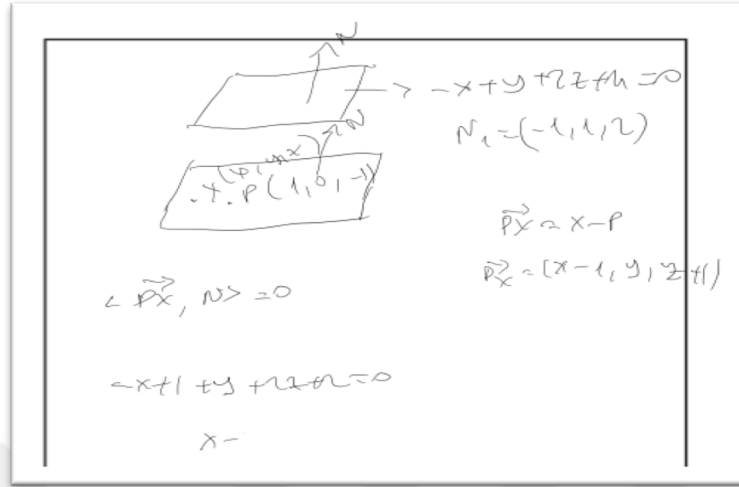 N
-x+y+2z+4=0
N₁=(-1,1,2)
N
.X .P(1,0,-1)
PX = X-P
PX = (x-1, y, z+1)
< PX, N> =0
-x+1 +y +2z+2=0
x-